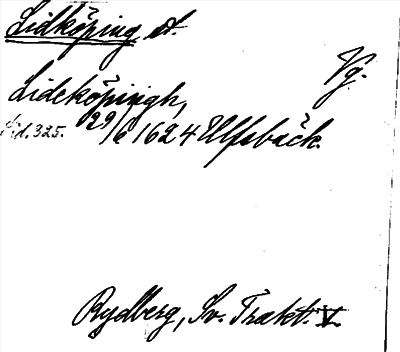 Lidköping st.
Vg.
Lideköpingh,
sid. 325. 29/6 1624 Ulfsbäck.
Rydberg, Sv. Trakt. V.